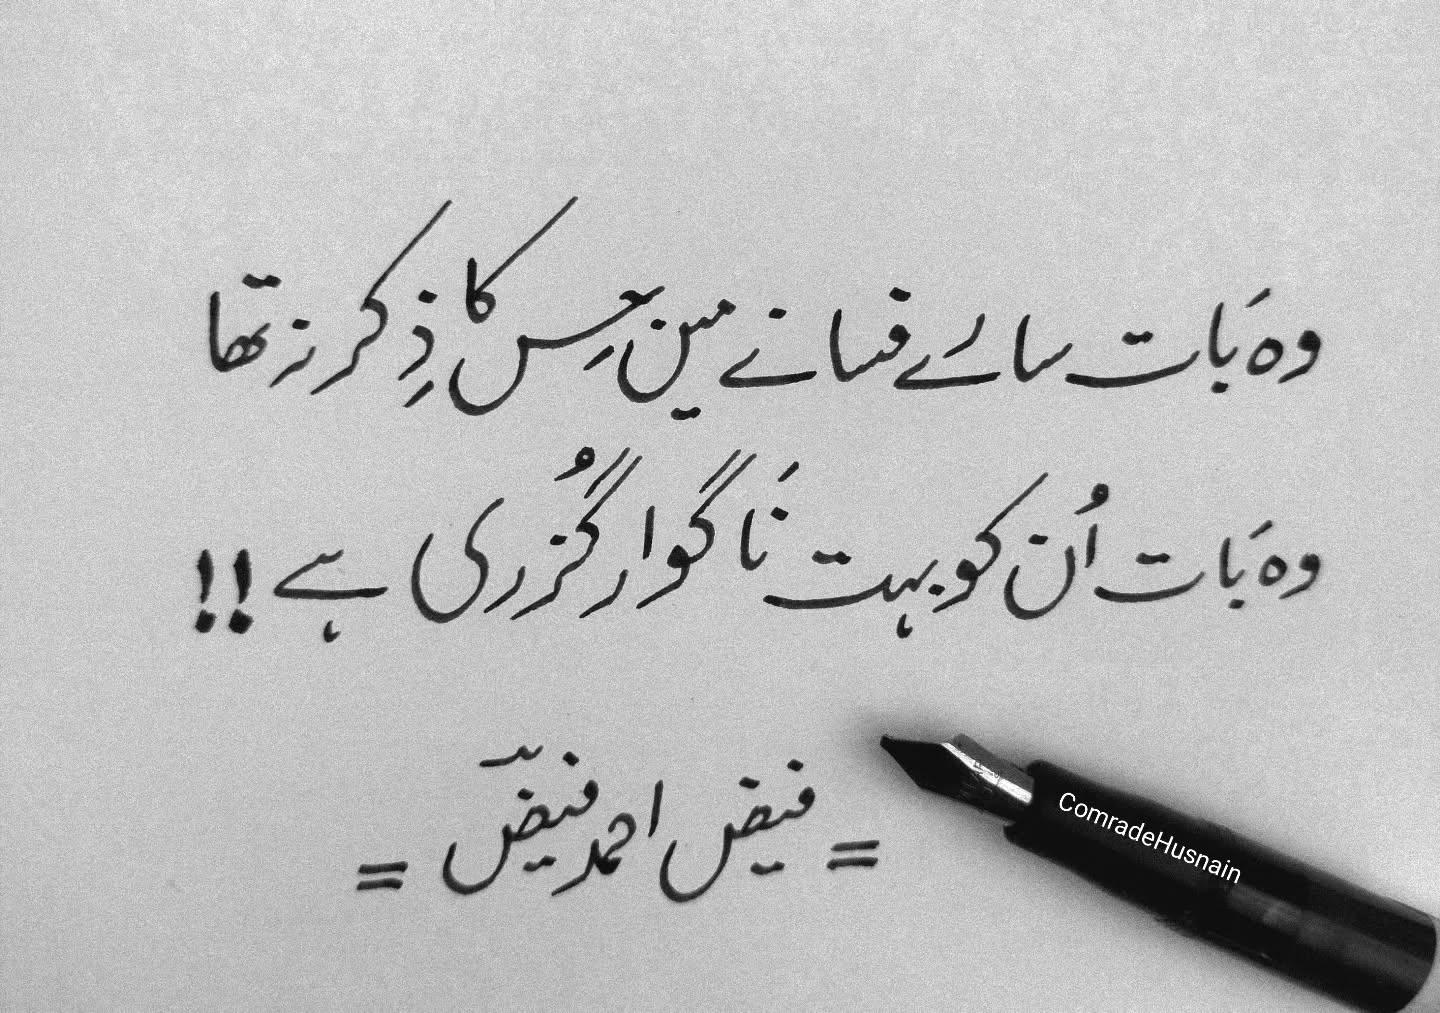 وہ بَات سارے فسانے میں جِس کا ذِکر نہ تھا
وہ بَات اُن کو بہت نَاگوار گُزری ہے !!
= فیض احمد فیضؔ =
ComradeHusnain